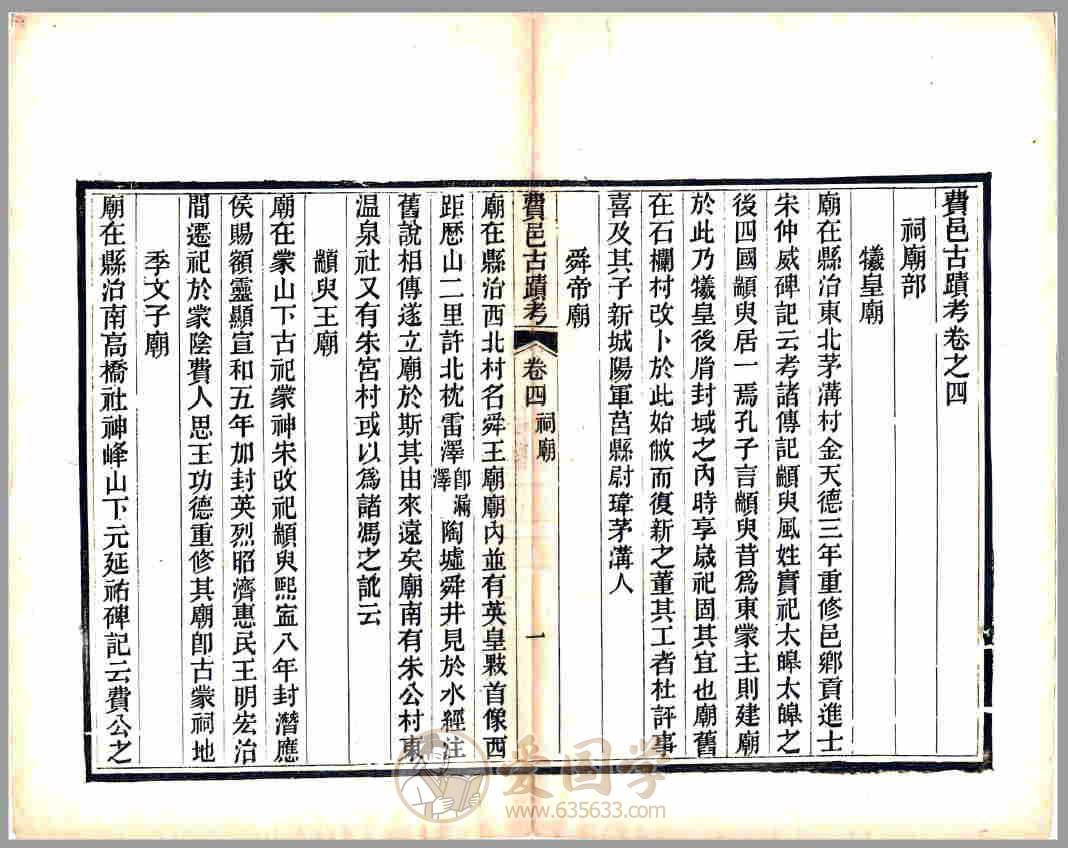 費邑古蹟考卷之四
祠廟部
犧皇廟
廟在縣治東北茅溝村金天德三年重修邑鄉貢進士
宋仲威碑記云考諸傳記顓臾風姓實祀太皞太皞之
後四國顓臾居一焉孔子言顓臾昔爲東蒙主則建廟
於此乃犧皇後胥封域之內時享歲祀固其宜也廟舊
在石欄村改卜於此始敝而復新之董其工者杜評事
喜及其子新城陽軍莒縣尉瑋茅溝人
舜帝廟
費邑古蹟考 卷四 祠廟 一
廟在縣治西北村名舜王廟廟內並有英皇敤首像西
距歷山二里許北枕雷澤卽漏澤陶墟舜井見於水經注
舊說相傳遂立廟於斯其由來遠矣廟南有朱公村東
温泉社又有朱宮村或以爲諸馮之訛云
顓臾王廟
廟在蒙山下古祀蒙神朱改祀顓臾熙寍八年封潛應
侯賜額靈顯宣和五年加封英烈昭濟惠民王明宏治
間遷祀於蒙陰費人思王功德重修其廟卽古蒙祠地
季文子廟
廟在縣治南高橋社神峰山下元延祐碑記云費公之
爱国学
www.635633.com